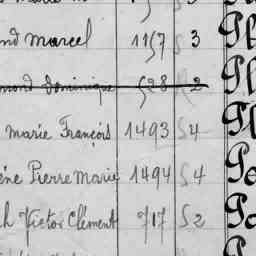 nd Marcel 1157 S 3
mond Dominique 528 2
Marie François 1493 S 4
ène Pierre Marie 1494 S 4
h Victor Clément 717 S 2